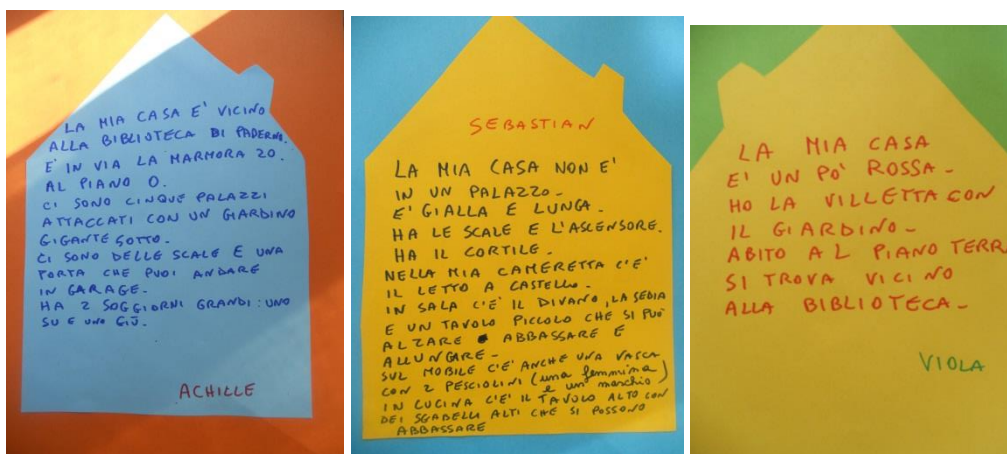 LA MIA CASA E' VICINO
ALLA BIBLIOTECA DI PADERNO.
E' IN VIA LA MARMORA 20.
AL PIANO 0.
CI SONO CINQUE PALAZZI
ATTACCATI CON UN GIARDINO
GIGANTE SOTTO.
CI SONO DELLE SCALE E UNA
PORTA CHE PUOI ANDARE
IN GARAGE.
HA 2 SOGGIORNI GRANDI: UNO
SU E UNO GIÙ.
ACHILLE
SEBASTIAN
LA MIA CASA NON E'
IN UN PALAZZO -
E' GIALLA E LUNGA.
HA LE SCALE E L'ASCENSORE.
HA IL CORTILE.
NELLA MIA CAMERETTA C'E'
IL LETTO A CASTELLO.
IN SALA C'E' IL DIVANO, LA SEDIA
E UN TAVOLO PICCOLO CHE SI PUÒ
ALZARE ABBASSARE E
ALLUNGARE -
SUL MOBILE C'E' ANCHE UNA VASCA
CON 2 PESCIOLINI (una femmina
e un maschio)
IN CUCINA C'E' IL TAVOLO ALTO CON
DEI SGABELLI ALTI CHE SI POSSONO
ABBASSARE
LA MIA CASA
E' UN PÒ ROSSA -
HO LA VILLETTA CON
IL GIARDINO -
ABITO AL PIANO TERR
SI TROVA VICINO
ALLA BIBLIOTECA -
VIOLA